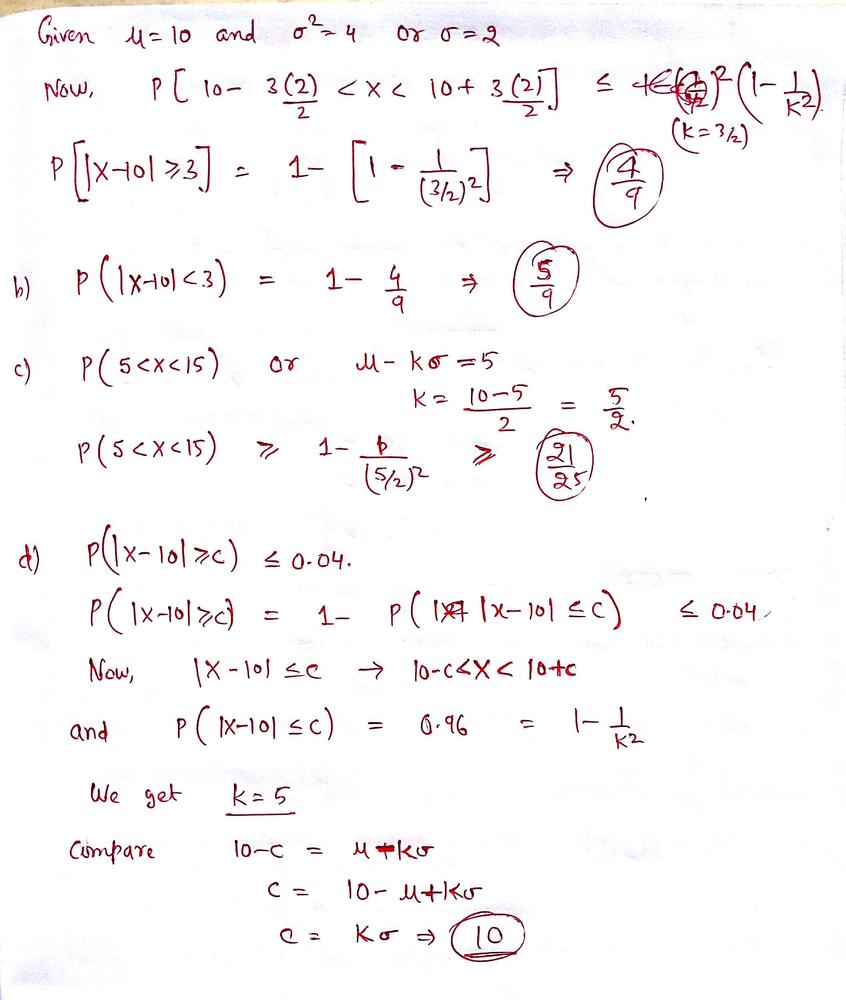 Given μ = 10 and σ² = 4 or σ = 2
Now, P[10 - 3(2)/2 < X < 10 + 3(2)/2] ≤ (1 - 1/K²)
(K = 3/2)
P[|X-10| ≥ 3] = 1 - [1 - 1/(3/2)²] ⇒ 4/9
b) P(|X-10| < 3) = 1 - 4/9 ⇒ 5/9
c) P(5 < X < 15) or μ - kσ = 5
K = 10-5/2 = 5/2.
P(5 < X < 15) ≥ 1 - 1/(5/2)² ≥ 21/25
d) P(|X-10| ≥ c) ≤ 0.04.
P(|X-10| ≥ c) = 1 - P(|X-10| ≤ c) ≤ 0.04
Now, |X-10| ≤ c → 10-c < X < 10+c
and P(|X-10| ≤ c) = 0.96 = 1 - 1/K²
We get k = 5
Compare 10-c = μ+kσ
c = 10 - μ+kσ
c = Kσ ⇒ 10